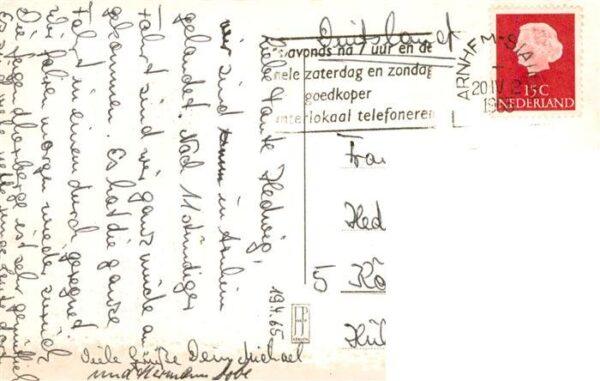 Duitsland
'savonds na 7 uur en de
hele zaterdag en zondag
goedkoper
interlokaal telefoneren
ARNHEM-STA
20 IV
15 C
NEDERLAND
19.4.65
Liebe Tante Hedwig,
wir sind in Arnheim
gelandet. Nach 11 stündiger
Fahrt sind wir ganz müde an
gekommen. Es hat die ganze
Fahrt in einem durch geregnet.
Wir fahren morgen wieder zurück
Die Jugendherberge ist sehr gemütlich
Viele Grüße Dein Michael
und Hermann
Fra
Hed
5 Kö